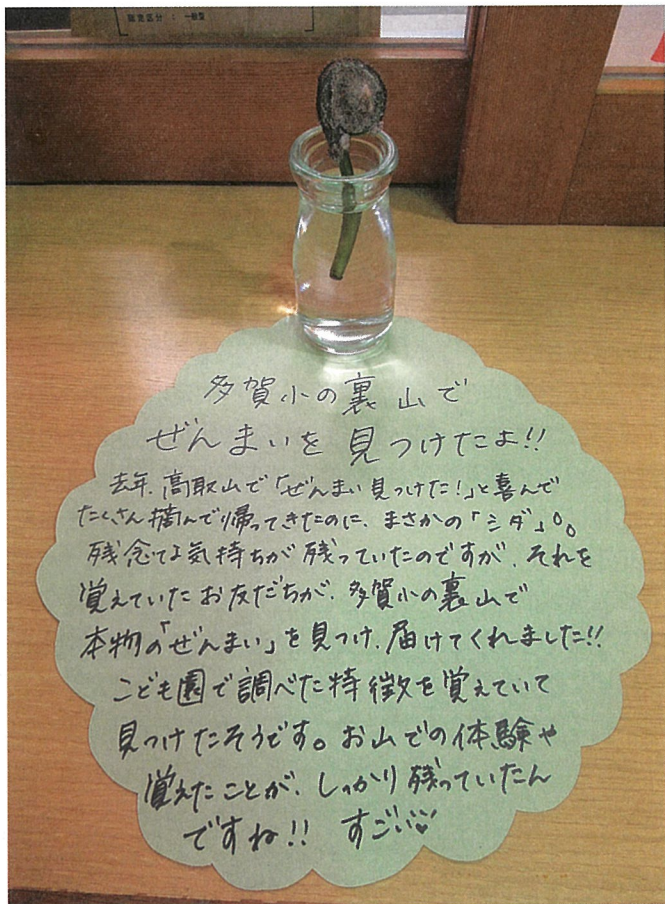 販売区分 : 一般型
多賀小の裏山で
ぜんまいを見つけたよ!!
去年、高取山で「ぜんまい見つけた!」と喜んで
たくさん摘んで帰ってきたのに、まさかの「シダ」。。
残念な気持ちが残っていたのですが、それを
覚えていたお友だちが、多賀小の裏山で
本物の「ぜんまい」を見つけ、届けてくれました!!
こども園で調べた特徴を覚えていて
見つけたそうです。お山での体験や
覚えたことが、しっかり残っていたん
ですね!! すごい♡